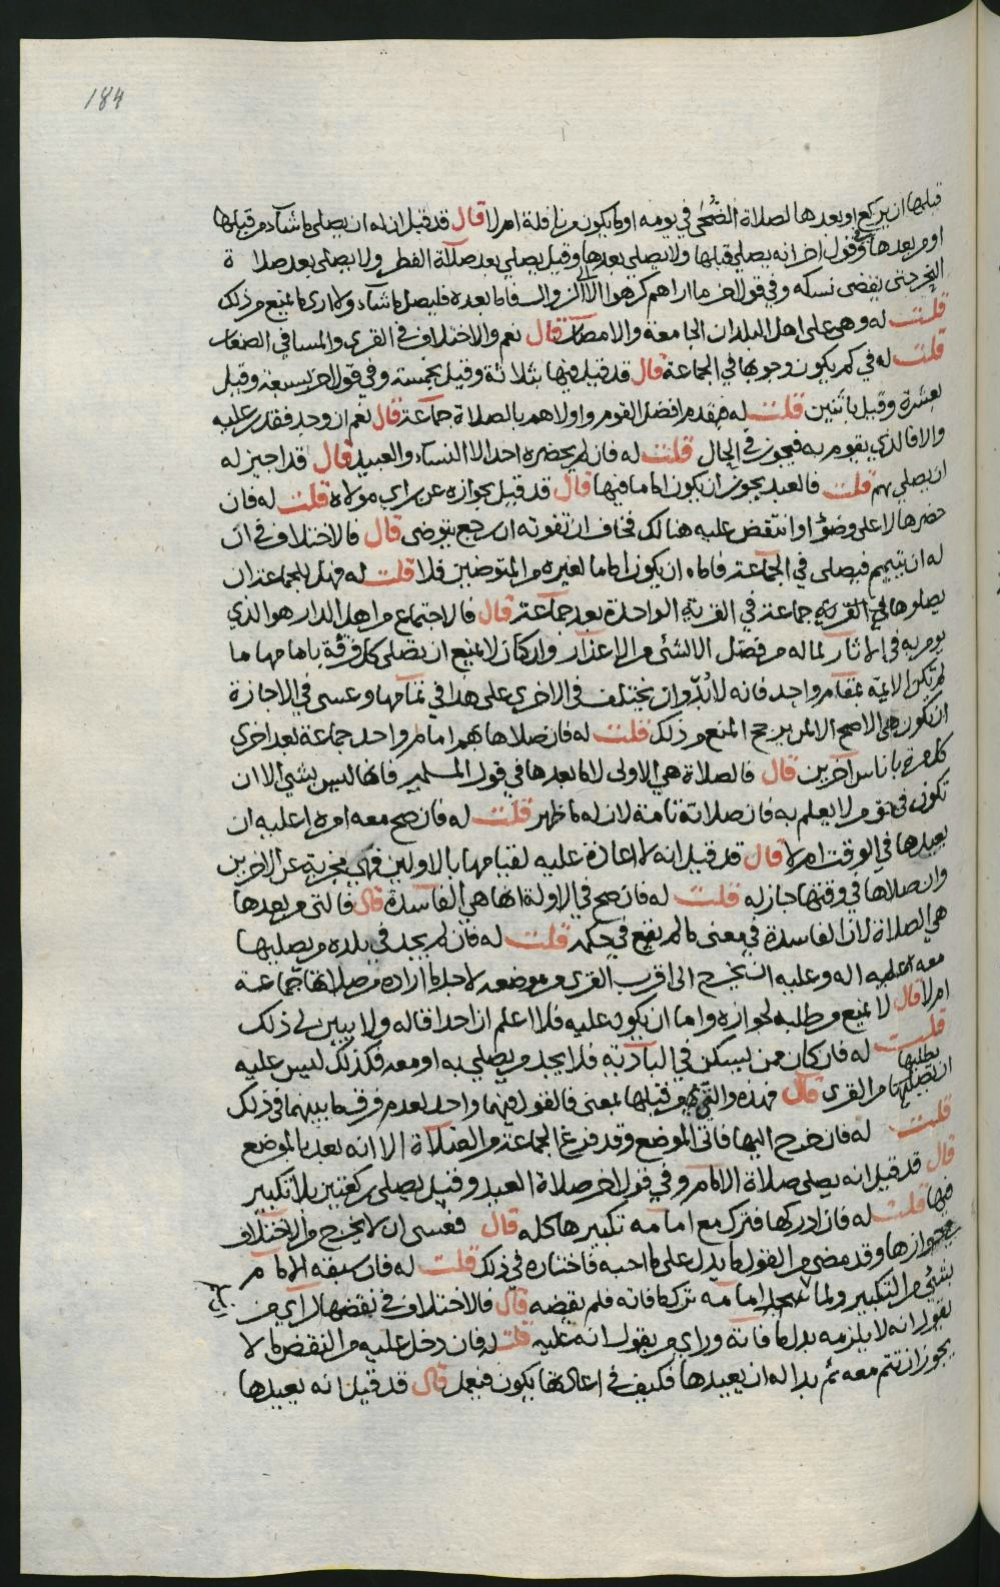 184
قبلها ان يركع او بعدها لصلاة الضحى في يومه او ما يكون من نافلة ام لا قال قد قيل ان له ان يصلي ما شآء من قبلها
او من بعدها وفي قول اخر انه يصلي قبلها ولا يصلي بعدها وقيل يصلي بعد صلاة الفطر ولا يصلي بعد صلاة
النحر حتى يقضى نسكه وفي قول اخر ما اراهم كرهوا الا الزوال فاما بعده فليصل ما شآء ولا ارى ما يمنع من ذلك
قلت له وهي على اهل البلدان الجامعة والامصار قال نعم والاختلاف في القرى والمسافي الصغار
قلت له في كم يكون وجوبها في الجماعة قال قد قيل فيها بثلاثة وقيل بخمسة وفي قول اخر بسبعة وقيل
بعشرة وقيل باثنين قلت له فيقدم افضل القوم واولاهم بالصلاة جماعة قال نعم ان وجد فقدر عليه
والا فالذي يقوم به فيجوز في الحال قلت له فان لم يحضره احد الا النسآء والعبيد قال قد اجيز له
ان يصلي بهم قلت فالعبد يجوز ان يكون اماما فيها قال قد قيل بجوازه عن راي مولاه قلت له فان
حضرها لا على وضؤ او انتقض عليه هنالك فخاف ان تفوته ان رجع يتوضى قال فالاختلاف في ان
له ان تيمم فيصلى في الجماعة فاما ان يكون اماما لغيره من المتوضين فلا قلت له فهل للجماعة ان
يصلوها في القرية جماعة في القرية الواحدة بعد جماعة قال فالاجتماع من اهل الدار هو الذي
يومر به في الاثار لما له من فضل الا لشئ من الاعذار وان كان لا يمنع ان تصلى كل فرقة بامامها ما
لم تكن الايمة بمقام واحد فانه لا بد وان يختلف في الاخرى على هذا في تمامها وعسى في الاجازة
ان تكون هي الاصح الا لمن يرجح المنع من ذلك قلت له فان صلاها بهم امام واحد جماعة بعد اخرى
كل مرة باناس آخرين قال فالصلاة هي الاولى لا ما بعدها في قول المسلمين فانها ليس بشئ الا ان
تكون في قوم لا يعلم به فان صلاته تامة لان له ما ظهر قلت له فان صح معه امره اعليه ان
يعيدها في الوقت ام لا قال قد قيل انه لا اعادة عليه لقيامها بالاولين فهي مجزية عن الاخرين
وان صلاها في وقتها جاز له قلت له فان صح في الاولة انها هي الفاسدة قال فالتي من بعدها
هي الصلاة لان الفاسدة في معنى ما لم يقع في حكمه قلت له فان لم يجد في بلده من يصليها
معه اعليه اله وعليه ان يخرج الى اقرب القرى من موضعه لاجل ما اراده من صلاتها جماعة
ام لا قال لا يمنع من طلبه لجوازه واما ان يكون عليه فلا اعلم ان احدا قاله ولا يبين لي ذلك
قلت له فان كان ممن يسكن في البادية فلا يجد من يصلي به او معه فكذلك ليس عليه
يطلبها
ان يصليها من القرى قال فهذه والتي من قبلها بمعنى فالقول فيهما واحد لعدم فرق ما بينهما في ذلك
قلت له فان خرج اليها فاتى الموضع وقد فرغ الجماعة من الصلاة الا انه بعد بالموضع
قال قد قيل انه يصلي صلاة الامام وفي قول اخر صلاة العيد وقيل يصلي ركعتين بلا تكبير
فيها قلت له فان ادركها فترك مع امامه تكبيرها كله قال فعسى ان لا يخرج من الاختلاف
في جوازها وقد مضى من القول ما يدل على ما احبه فاختاره في ذلك قلت له فان سبقه الامام
بشئ من التكبير ولما سجد امامه ترك ما فاته فلم يقضه قال فالاختلاف في نقضها لراي من
يقول انه لا يلزمه بدل ما فاته وراي من يقول انه عليه قلت له فان دخل عليه من النقض ما لا
يجوز ان تتم معه ثم بدا له ان يعيدها فكيف في اعادتها يكون فيعمل قال قد قيل انه يعيدها